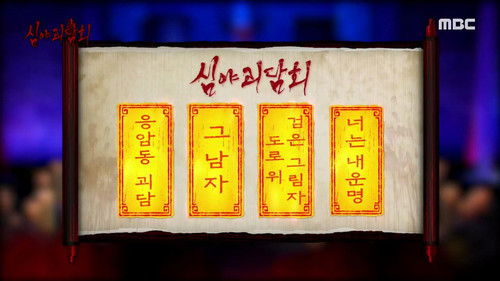 심야괴담회
MBC
심야괴담회
응암동 괴담
그 남자
도로위
검은 그림자
너는 내 운명